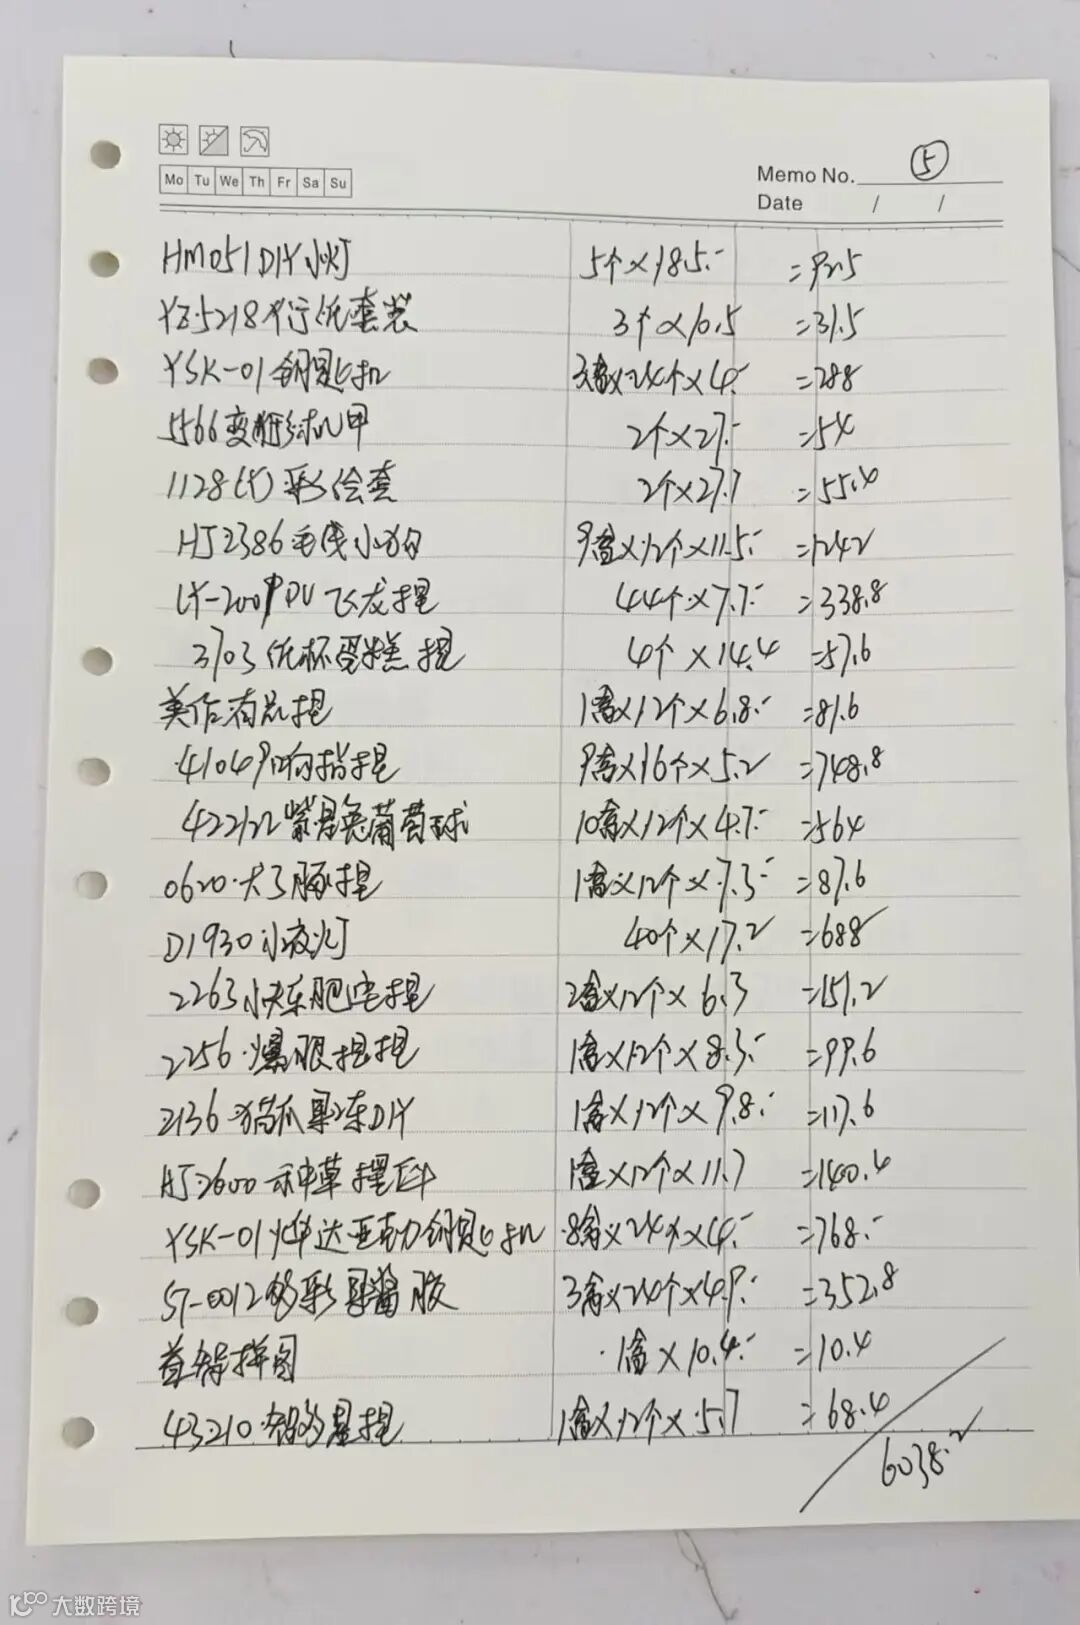 Mo Tu We Th Fr Sa Su
Memo No. ⑤
Date / /
HM051 DIY小灯 5个×18.5.- =92.5
YZ.5218 纸套装 3个×10.5 =31.5
YSK-01 钥匙扣 3盒×24个×4.- =288
5566变形球机甲 2个×27.- =54
1128(大)彩绘套 2个×27.7 =55.4
HJ2386毛线小狗 9盒×12个×11.5.- =1242
LY-2009PU飞龙捏 44个×7.7.- =338.8
3703纸杯蛋糕捏 4个×14.4 =57.6
美作有品捏 1盒×12个×6.8.- =81.6
41049响指捏 9盒×16个×5.2 =748.8
422122紫晶兔葡萄球 10盒×12个×4.7.- =564
0620.大了豚捏 1盒×12个×7.3.- =87.6
D1930小夜灯 40个×17.2 =688
2263快乐肥宅捏 2盒×12个×6.3 =151.2
2256.爆眼捏捏 1盒×12个×8.3.- =99.6
2136.猫爪果冻DIY 1盒×12个×9.8.- =117.6
HJ.2600一种草捏 1盒×12个×11.7 =140.4
YSK-01烨达亚克力钥匙扣 8盒×24个×4.- =768.-
ST-0012多彩果酱胶 3盒×24个×4.9.- =352.8
益智拼图 1盒×10.4.- =10.4
43210.智多星捏 1盒×12个×5.7 =68.4
6038.2
大数跨境